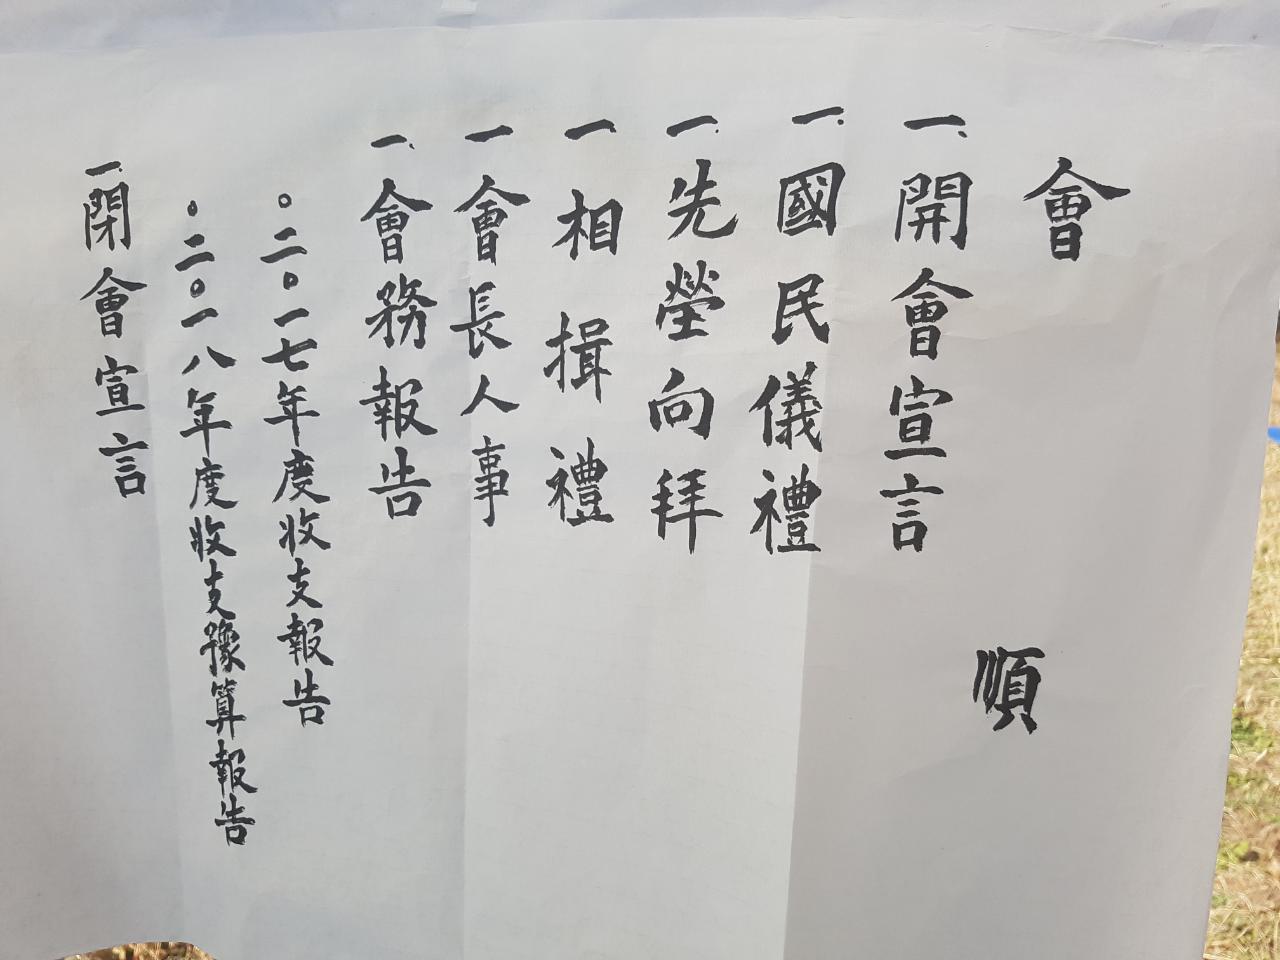 會順
一. 開會宣言
一. 國民儀禮
一. 先塋向拜
一 相揖禮
一 會長人事
一. 會務報告
。二。一七年度收支報告
。二。一八年度收支豫算報告
一. 閉會宣言